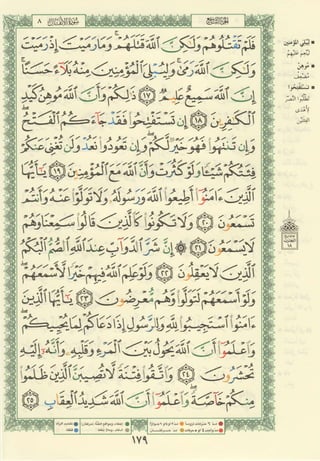 الجزء التاسع
سورة الأنفال ٨
فَلَمْ تَقْتُلُوهُمْ وَلَٰكِنَّ ٱللَّهَ قَتَلَهُمْ ۚ وَمَا رَمَيْتَ إِذْ رَمَيْتَ
وَلَٰكِنَّ ٱللَّهَ رَمَىٰ ۚ وَلِيُبْلِىَ ٱلْمُؤْمِنِينَ مِنْهُ بَلَآءً حَسَنًا ۚ
إِنَّ ٱللَّهَ سَمِيعٌ عَلِيمٌ ١٧ ذَٰلِكُمْ وَأَنَّ ٱللَّهَ مُوهِنُ كَيْدِ
ٱلْكَٰفِرِينَ ١٨ إِن تَسْتَفْتِحُوا۟ فَقَدْ جَآءَكُمُ ٱلْفَتْحُ ۖ
وَإِن تَنتَهُوا۟ فَهُوَ خَيْرٌ لَّكُمْ ۖ وَإِن تَعُودُوا۟ نَعُدْ وَلَن تُغْنِىَ عَنكُمْ
فِئَتُكُمْ شَيْـًٔا وَلَوْ كَثُرَتْ وَأَنَّ ٱللَّهَ مَعَ ٱلْمُؤْمِنِينَ ١٩ يَٰٓأَيُّهَا
ٱلَّذِينَ ءَامَنُوٓا۟ أَطِيعُوا۟ ٱللَّهَ وَرَسُولَهُۥ وَلَا تَوَلَّوْا۟ عَنْهُ وَأَنتُمْ
تَسْمَعُونَ ٢٠ وَلَا تَكُونُوا۟ كَٱلَّذِينَ قَالُوا۟ سَمِعْنَا وَهُمْ
لَا يَسْمَعُونَ ٢١ ۞ إِنَّ شَرَّ ٱلدَّوَآبِّ عِندَ ٱللَّهِ ٱلصُّمُّ ٱلْبُكْمُ
ٱلَّذِينَ لَا يَعْقِلُونَ ٢٢ وَلَوْ عَلِمَ ٱللَّهُ فِيهِمْ خَيْرًا لَّأَسْمَعَهُمْ ۖ
وَلَوْ أَسْمَعَهُمْ لَتَوَلَّوا۟ وَّهُم مُّعْرِضُونَ ٢٣ يَٰٓأَيُّهَا ٱلَّذِينَ
ءَامَنُوا۟ ٱسْتَجِيبُوا۟ لِلَّهِ وَلِلرَّسُولِ إِذَا دَعَاكُمْ لِمَا يُحْيِيكُمْ ۖ
وَٱعْلَمُوٓا۟ أَنَّ ٱللَّهَ يَحُولُ بَيْنَ ٱلْمَرْءِ وَقَلْبِهِۦ وَأَنَّهُۥٓ إِلَيْهِ
تُحْشَرُونَ ٢٤ وَٱتَّقُوا۟ فِتْنَةً لَّا تُصِيبَنَّ ٱلَّذِينَ ظَلَمُوا۟
مِنكُمْ خَآصَّةً ۖ وَٱعْلَمُوٓا۟ أَنَّ ٱللَّهَ شَدِيدُ ٱلْعِقَابِ ٢٥
١٧٩